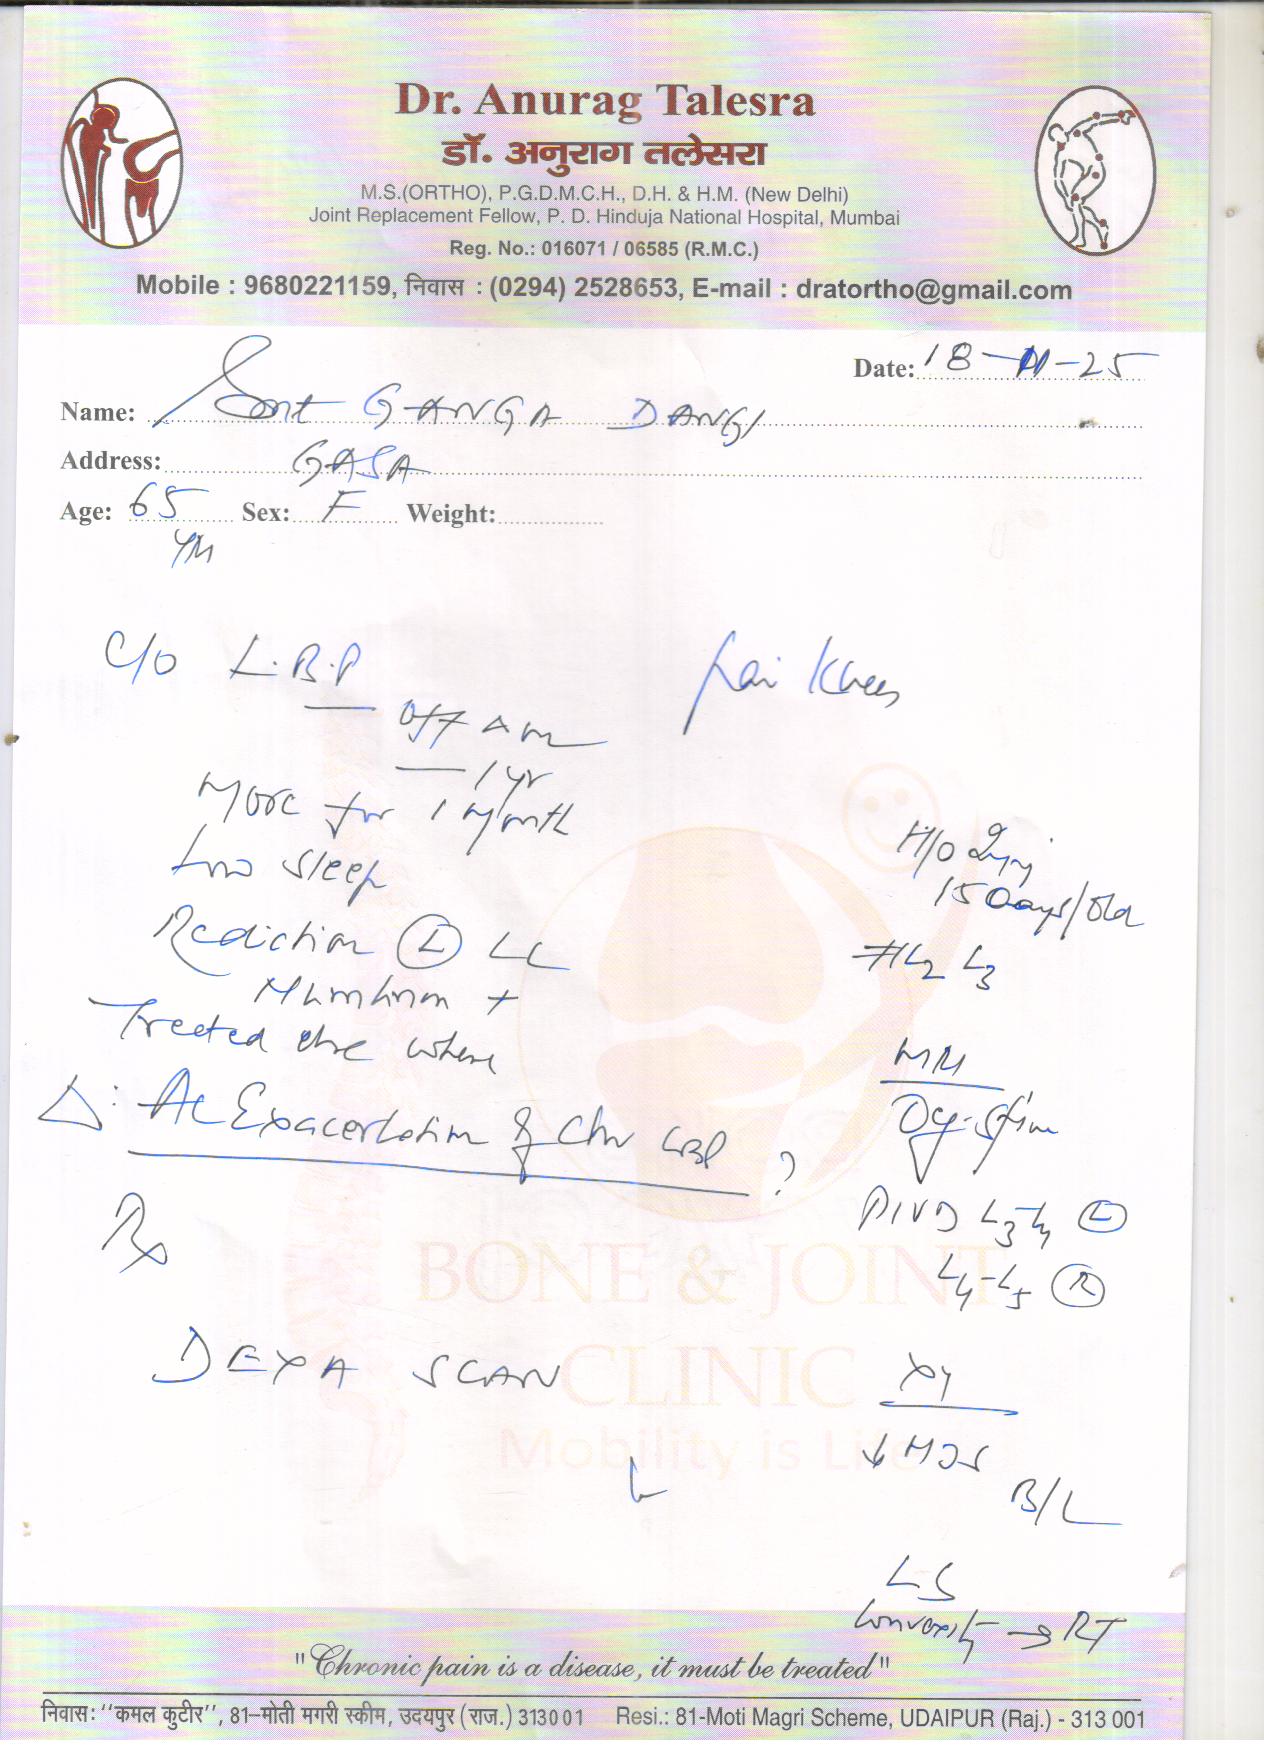 Dr. Anurag Talesra
डॉ. अनुराग तलेसरा
M.S.(ORTHO), P.G.D.M.C.H., D.H. & H.M. (New Delhi)
Joint Replacement Fellow, P. D. Hinduja National Hospital, Mumbai
Reg. No.: 016071 / 06585 (R.M.C.)
Mobile : 9680221159, निवास : (0294) 2528653, E-mail : dratortho@gmail.com
Date: 18-11-25
Name: Smt GANGA DANGI
Address: GASA
Age: 65 Sex: F Weight:
C/O L.B.P
Pain Knees
off
1 yr
More for 1 Month
sleep
H/O Injury
15 Days/Old
Radiction (L) LL
# L2 L3
+
Treated else where
Δ: Ac Exacerbation of Chr LBP ?
MRI
Dg. Spine
PIVD L3-L4 (L)
L4-L5 (R)
Rx
DEXA SCAN
XY
↓ MJS
B/L
LS
Convexity → RT
BONE & JOINT
CLINIC
Mobility is Life
"Chronic pain is a disease, it must be treated"
निवास: "कमल कुटीर", 81-मोती मगरी स्कीम, उदयपुर (राज.) 313001 Resi.: 81-Moti Magri Scheme, UDAIPUR (Raj.) - 313 001